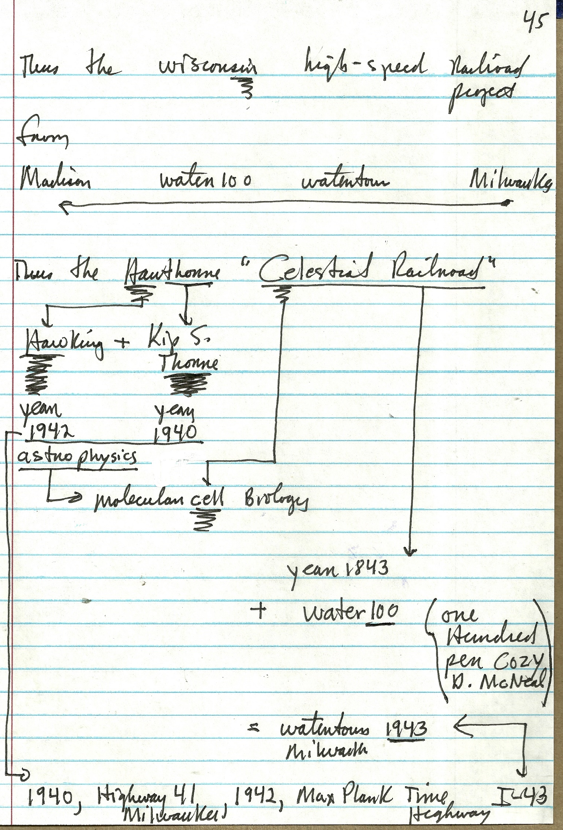 45
Thus the wisconsin high-speed Railroad
project
from
Madison water 100 watertown Milwaukee
Thus the Hawthorne "Celestial Railroad"
Hawking + Kip S.
Thorne
year year
1942 1940
astrophysics
molecular cell Biology
year 1843
+ water 100 (one
Hundred
per Cozy
D. McNeal)
= watertown 1943
1940, Highway 41, 1942, Max Plank Time I-43
Milwaukee Highway